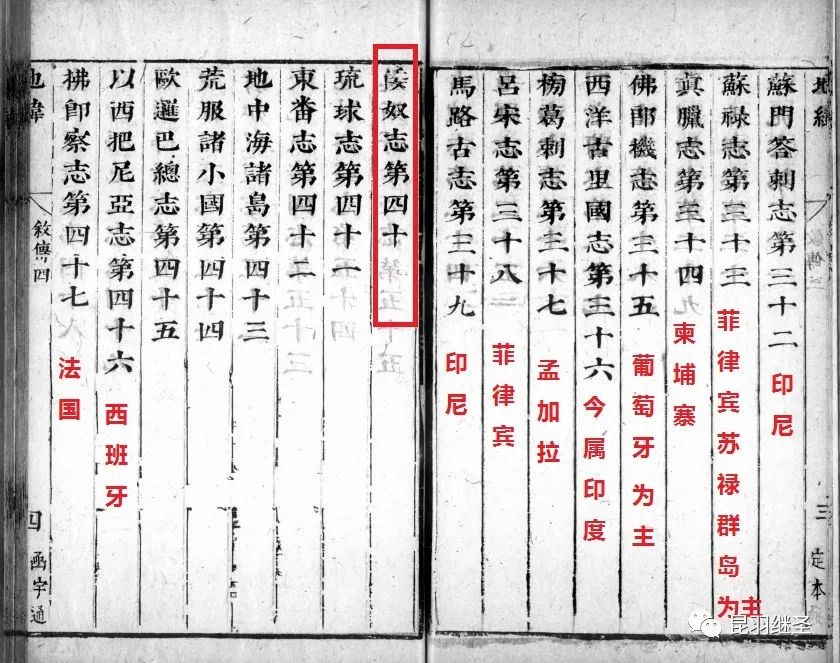 地緯
三
定本
蘇門荅剌志第三十二
印尼
蘇祿志第三十三
菲律宾苏禄群岛为主
眞臘志第三十四
柬埔寨
佛郎機志第三十五
葡萄牙为主
西洋古里國志第三十六
今属印度
榜葛剌志第三十七
孟加拉
呂宋志第三十八
菲律宾
馬路古志第三十九
印尼
倭奴志第四十
琉球志第四十一
東番志第四十二
地中海諸島第四十三
荒服諸小國第四十四
歐邏巴總志第四十五
以西把尼亞志第四十六
西班牙
拂郎察志第四十七
法国
地緯
敘傳四
四
函宇通
昆羽继圣